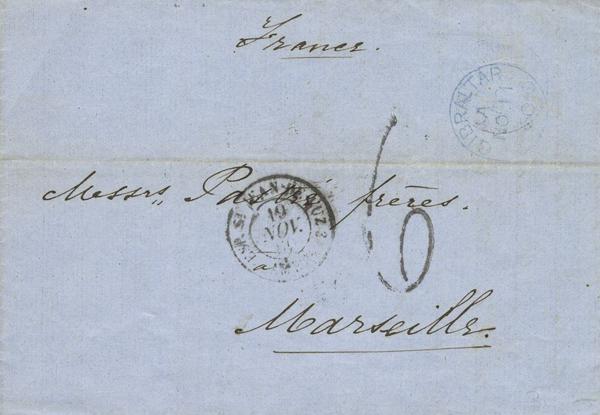 France.
GIBRALTAR
Messrs,, frères.
ESP. St JEAN-DE-LUZ 3
19
NOV.
6
Marseille.